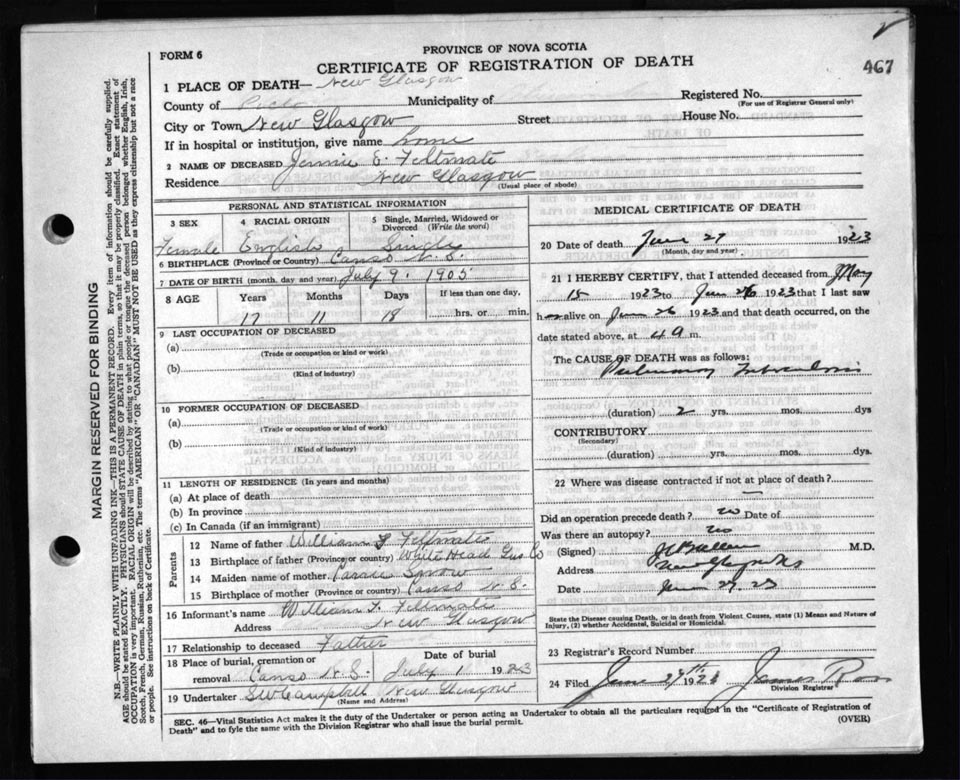 FORM 6
PROVINCE OF NOVA SCOTIA
CERTIFICATE OF REGISTRATION OF DEATH
467
1 PLACE OF DEATH— New Glasgow
Registered No.
(For use of Registrar General only)
County of Pictou Municipality of
City or Town New Glasgow Street House No.
If in hospital or institution, give name home
2 NAME OF DECEASED Jennie E. Feltmate
Residence New Glasgow
(Usual place of abode)
PERSONAL AND STATISTICAL INFORMATION
3 SEX 4 RACIAL ORIGIN 5 Single, Married, Widowed or Divorced (Write the word)
Female English Single
6 BIRTHPLACE (Province or Country) Canso N.S.
7 DATE OF BIRTH (month, day and year) July 9. 1905
8 AGE Years Months Days If less than one day,
17 11 18 hrs. or min.
9 LAST OCCUPATION OF DECEASED
(a)
(Trade or occupation or kind or work)
(b)
(Kind of industry)
10 FORMER OCCUPATION OF DECEASED
(a)
(Trade or occupation or kind or work)
(b)
(Kind of industry)
11 LENGTH OF RESIDENCE (In years and months)
(a) At place of death
(b) In province
(c) In Canada (if an immigrant)
Parents
12 Name of father William F. Feltmate
13 Birthplace of father (Province or country) White Head Gus. Co
14 Maiden name of mother Snow
15 Birthplace of mother (Province or country) Canso N.S.
16 Informant's name William F. Feltmate
Address New Glasgow
17 Relationship to deceased Father
18 Place of burial, cremation or removal Canso N.S. Date of burial July 1 1923
19 Undertaker Campbell New Glasgow
(Name and Address)
MEDICAL CERTIFICATE OF DEATH
20 Date of death June 27 1923
(Month, day and year)
21 I HEREBY CERTIFY, that I attended deceased from May
15 1923 to June 26 1923 that I last saw
her alive on June 26 1923 and that death occurred, on the
date stated above, at 4 a m.
The CAUSE OF DEATH was as follows:
Pulmonary Tuberculosis
(duration) 2 yrs. mos. dys
CONTRIBUTORY
(Secondary)
(duration) yrs. mos. dys
22 Where was disease contracted if not at place of death?
Did an operation precede death? no Date of
Was there an autopsy? no
(Signed) M.D.
Address New Glasgow N.S.
Date June 27. 23
State the Disease causing Death, or in death from Violent Causes, state (1) Means and Nature of
Injury, (2) whether Accidental, Suicidal or Homicidal.
23 Registrar's Record Number
24 Filed June 29th 1923 James Ross
Division Registrar
SEC. 46—Vital Statistics Act makes it the duty of the Undertaker or person acting as Undertaker to obtain all the particulars required in the "Certificate of Registration of
Death" and to fyle the same with the Division Registrar who shall issue the burial permit.
(OVER)
MARGIN RESERVED FOR BINDING
N.B.—WRITE PLAINLY WITH UNFADING INK—THIS IS A PERMANENT RECORD. Every item of information should be carefully supplied.
AGE should be stated EXACTLY. PHYSICIANS should STATE CAUSE OF DEATH in plain terms, so that it may be properly classified. Exact statement of
OCCUPATION is very important. RACIAL ORIGIN will be described by stating to what people or tongue the deceased person belonged whether English, Irish,
Scotch, French, German, Russian, Ruthenian, etc. The terms "AMERICAN" OR "CANADIAN" MUST NOT BE USED as they express citizenship but not a race
or people. See instructions on back of Certificate.